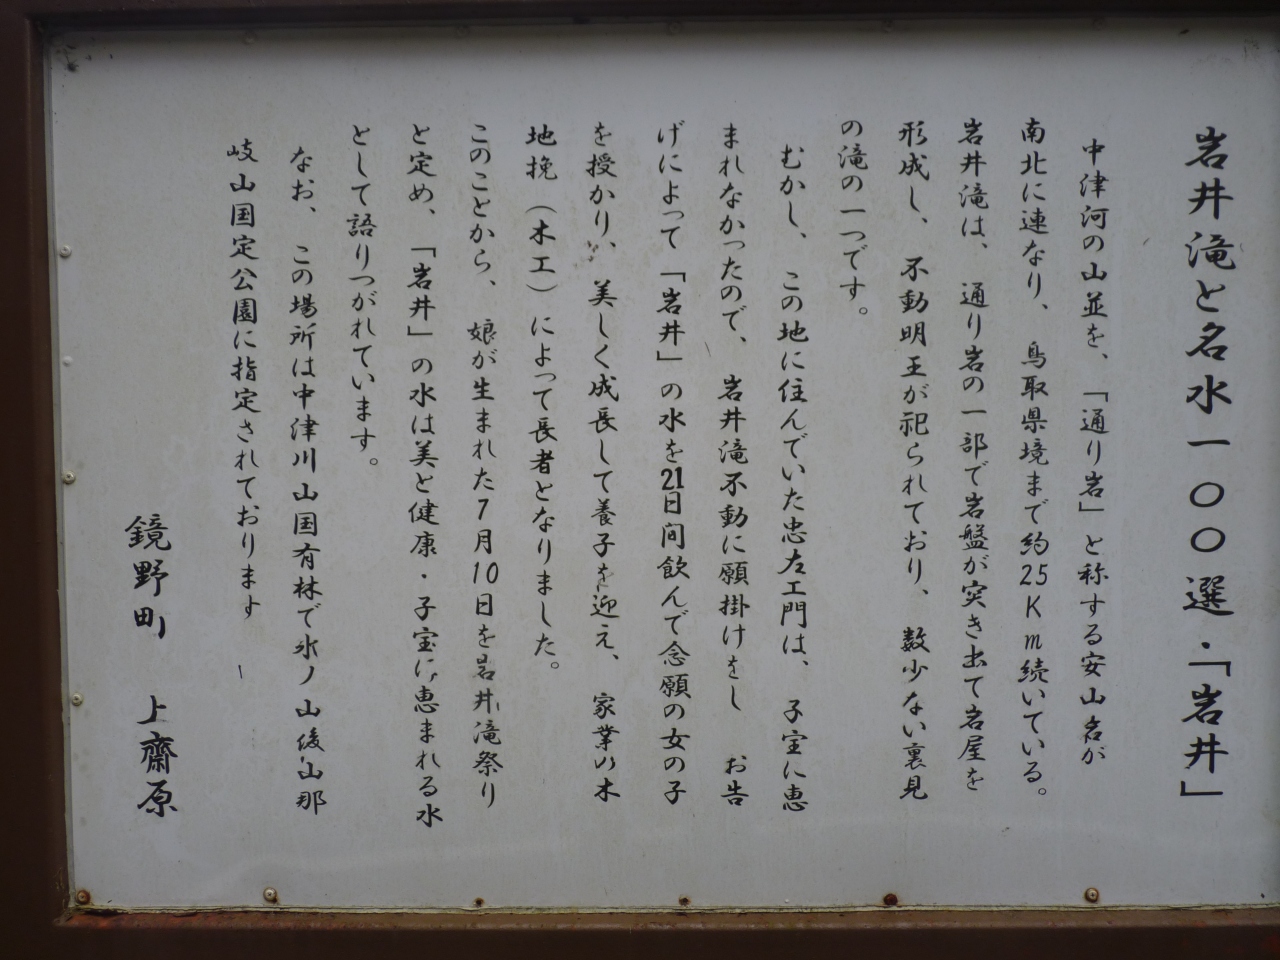 岩井滝と名水一〇〇選・「岩井」
中津河の山並を、「通り岩」と称する安山岩が
南北に連なり、鳥取県境まで約25Km続いている。
岩井滝は、通り岩の一部で岩盤が突き出て岩屋を
形成し、不動明王が祀られており、数少ない裏見
の滝の一つです。
むかし、この地に住んでいた忠左エ門は、子宝に恵
まれなかったので、岩井滝不動に願掛けをし お告
げによって「岩井」の水を21日間飲んで念願の女の子
を授かり、美しく成長して養子を迎え、家業の木
地挽(木工)によって長者となりました。
このことから、娘が生まれた7月10日を岩井滝祭り
と定め、「岩井」の水は美と健康・子宝に恵まれる水
として語りつがれています。
なお、この場所は中津川山国有林で氷ノ山後山那
岐山国定公園に指定されております
鏡野町 上齋原